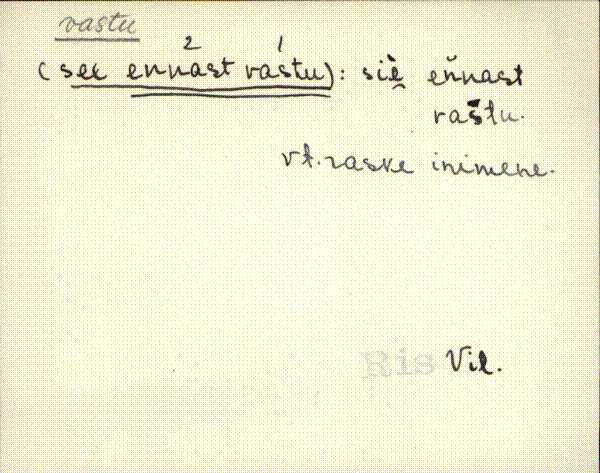 vastu
2 1
(see ennast vastu): siè̮ en̆nast
vaštu.
vt. raske inimene.
Ris Vil.